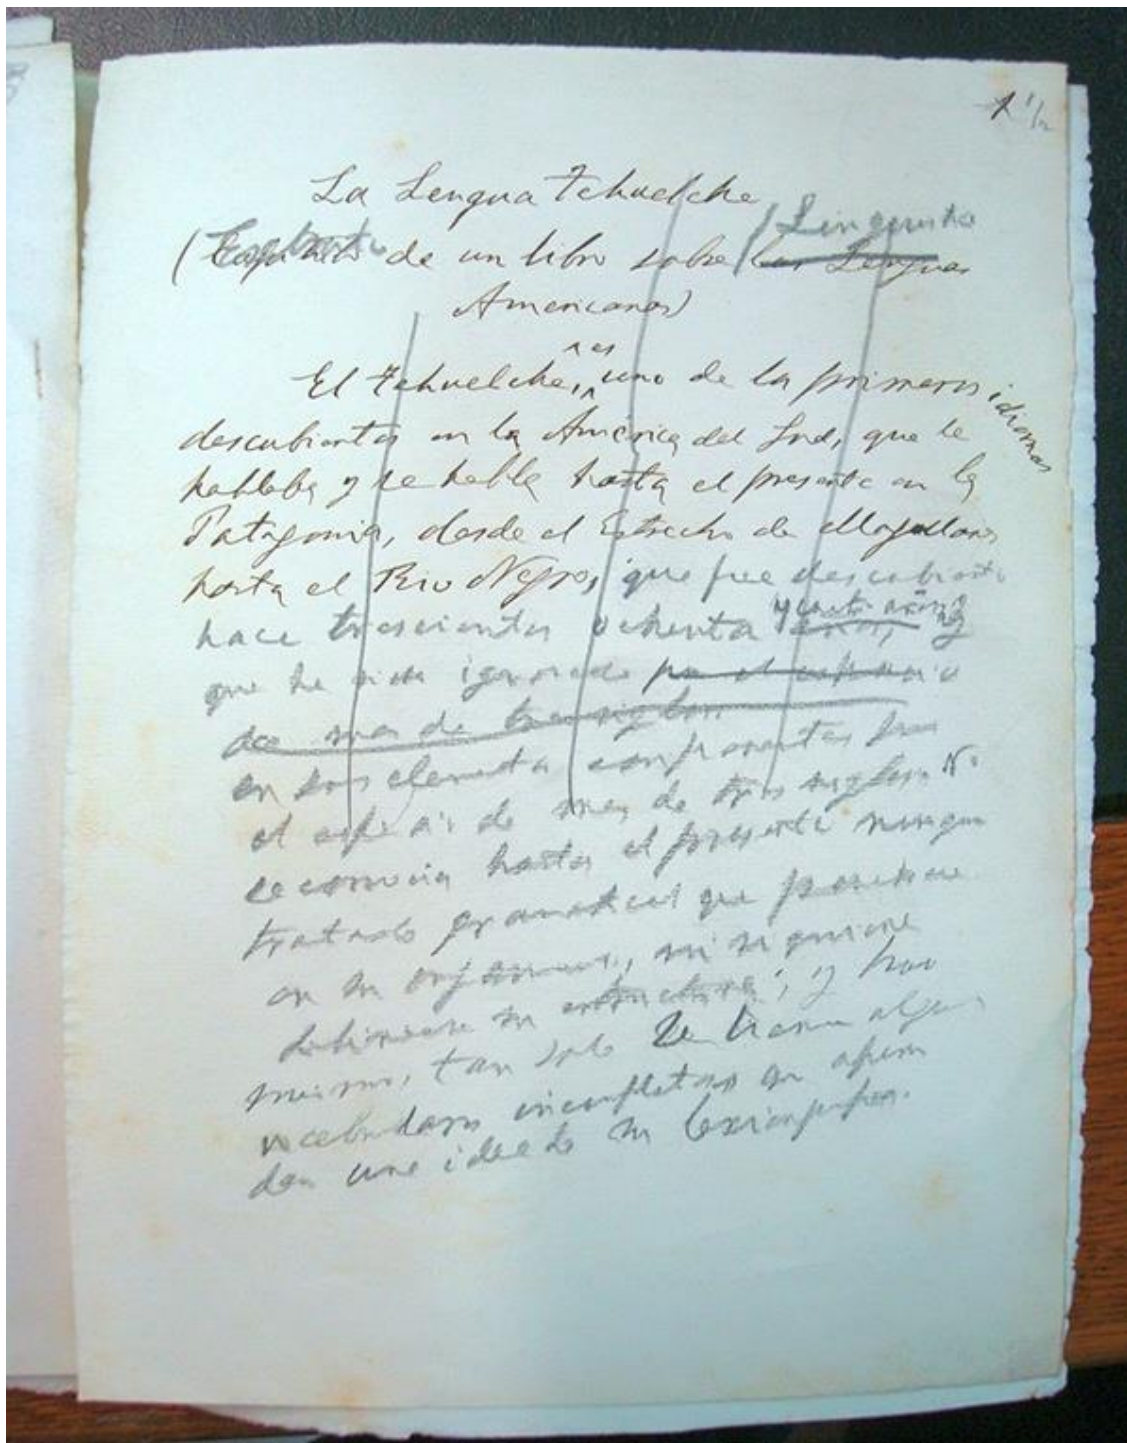 1 1/2
La Lengua Tehuelche
( de un libro sobre las Lenguas
Americanas)
El Tehuelche, es uno de la primeras idiomas
descubiertas en la América del Sud, que se
hablaba y se habla hasta el presente en la
Patagonia, desde el Estrecho de Magallanes
hasta el Rio Negro, que fue descubierto
hace trescientos ochenta años, y
que ha sido ignorado por el espacio
de mas de tres siglos.
en sus elementos componentes por
el espacio de mas de tres siglos. No
se conocia hasta el presente ningun
tratado gramatical que
en su organismo, ni siquiera
su estructura, y hoy
mismo, tan solo se tienen algunos
vocabularios incompletos que apenas
dan una idea de su